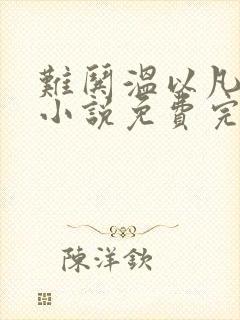 難鬨溫以凡
小說免費完
陳洋欽